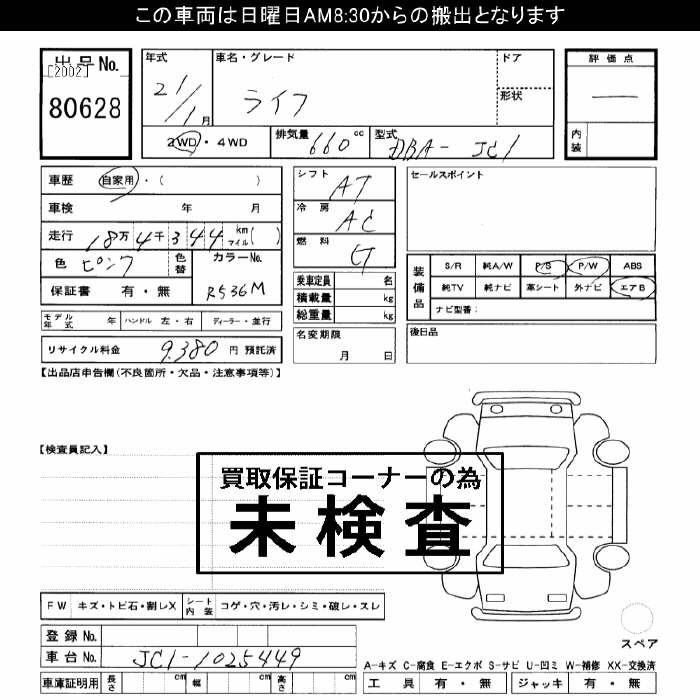 この車両は日曜日AM8:30からの搬出となります
出品No.
[2002]
80628
年式 車名・グレード ドア
21/1月 ライフ 形状
2WD・4WD 排気量 660cc 型式 DBA-JC1
評価点
―
内装
車歴 自家用・( )
車検 年 月
走行 18万4千344 km マイル( )
色 ピンク 色替 カラーNo. R536M
保証書 有・無
シフト AT
冷房 AC
燃料
乗車定員 名
積載量 kg
総重量 kg
セールスポイント
装備品 S/R 純A/W P/S P/W ABS
純TV 純ナビ 革シート 外ナビ エアB
ナビ型番:
モデル年式 年 ハンドル 左・右 ディーラー・並行
名変期限 月 日
後日品
リサイクル料金 9,380 円 預託済
【出品店申告欄(不良箇所・欠品・注意事項等)】
【検査員記入】
買取保証コーナーの為
未検査
FW キズ・トビ石・割レX シート内装 コゲ・穴・汚レ・シミ・破レ・スレ
登録No.
車台No. JC1-1025449
スペア
A-キズ C-腐食 E-エクボ S-サビ U-凹ミ W-補修 XX-交換済
車庫証明用 長さ cm 幅 cm 高さ cm
工具 有・無 ジャッキ 有・無